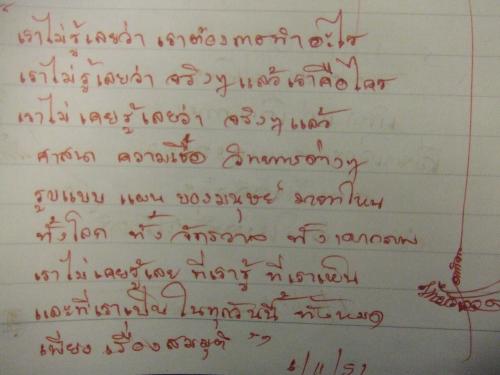 เราไม่รู้เลยว่า เราต้องการทำอะไร
เราไม่รู้เลยว่า จริงๆแล้วเราคือใคร
เราไม่เคยรู้เลยว่า จริงๆแล้ว
ศาสนา ความเชื่อ วิทยาการต่างๆ
รูปแบบ แผน ของมนุษย์ มาจากไหน
ทั้งโลก ทั้งจักรวาล ทั้งเอกภพ
เราไม่เคยรู้เลย ที่เรารู้ ที่เราเห็น
และที่เราเป็น ในทุกวันนี้ ทั้งหมด
เพียง เรื่องสมมุติ